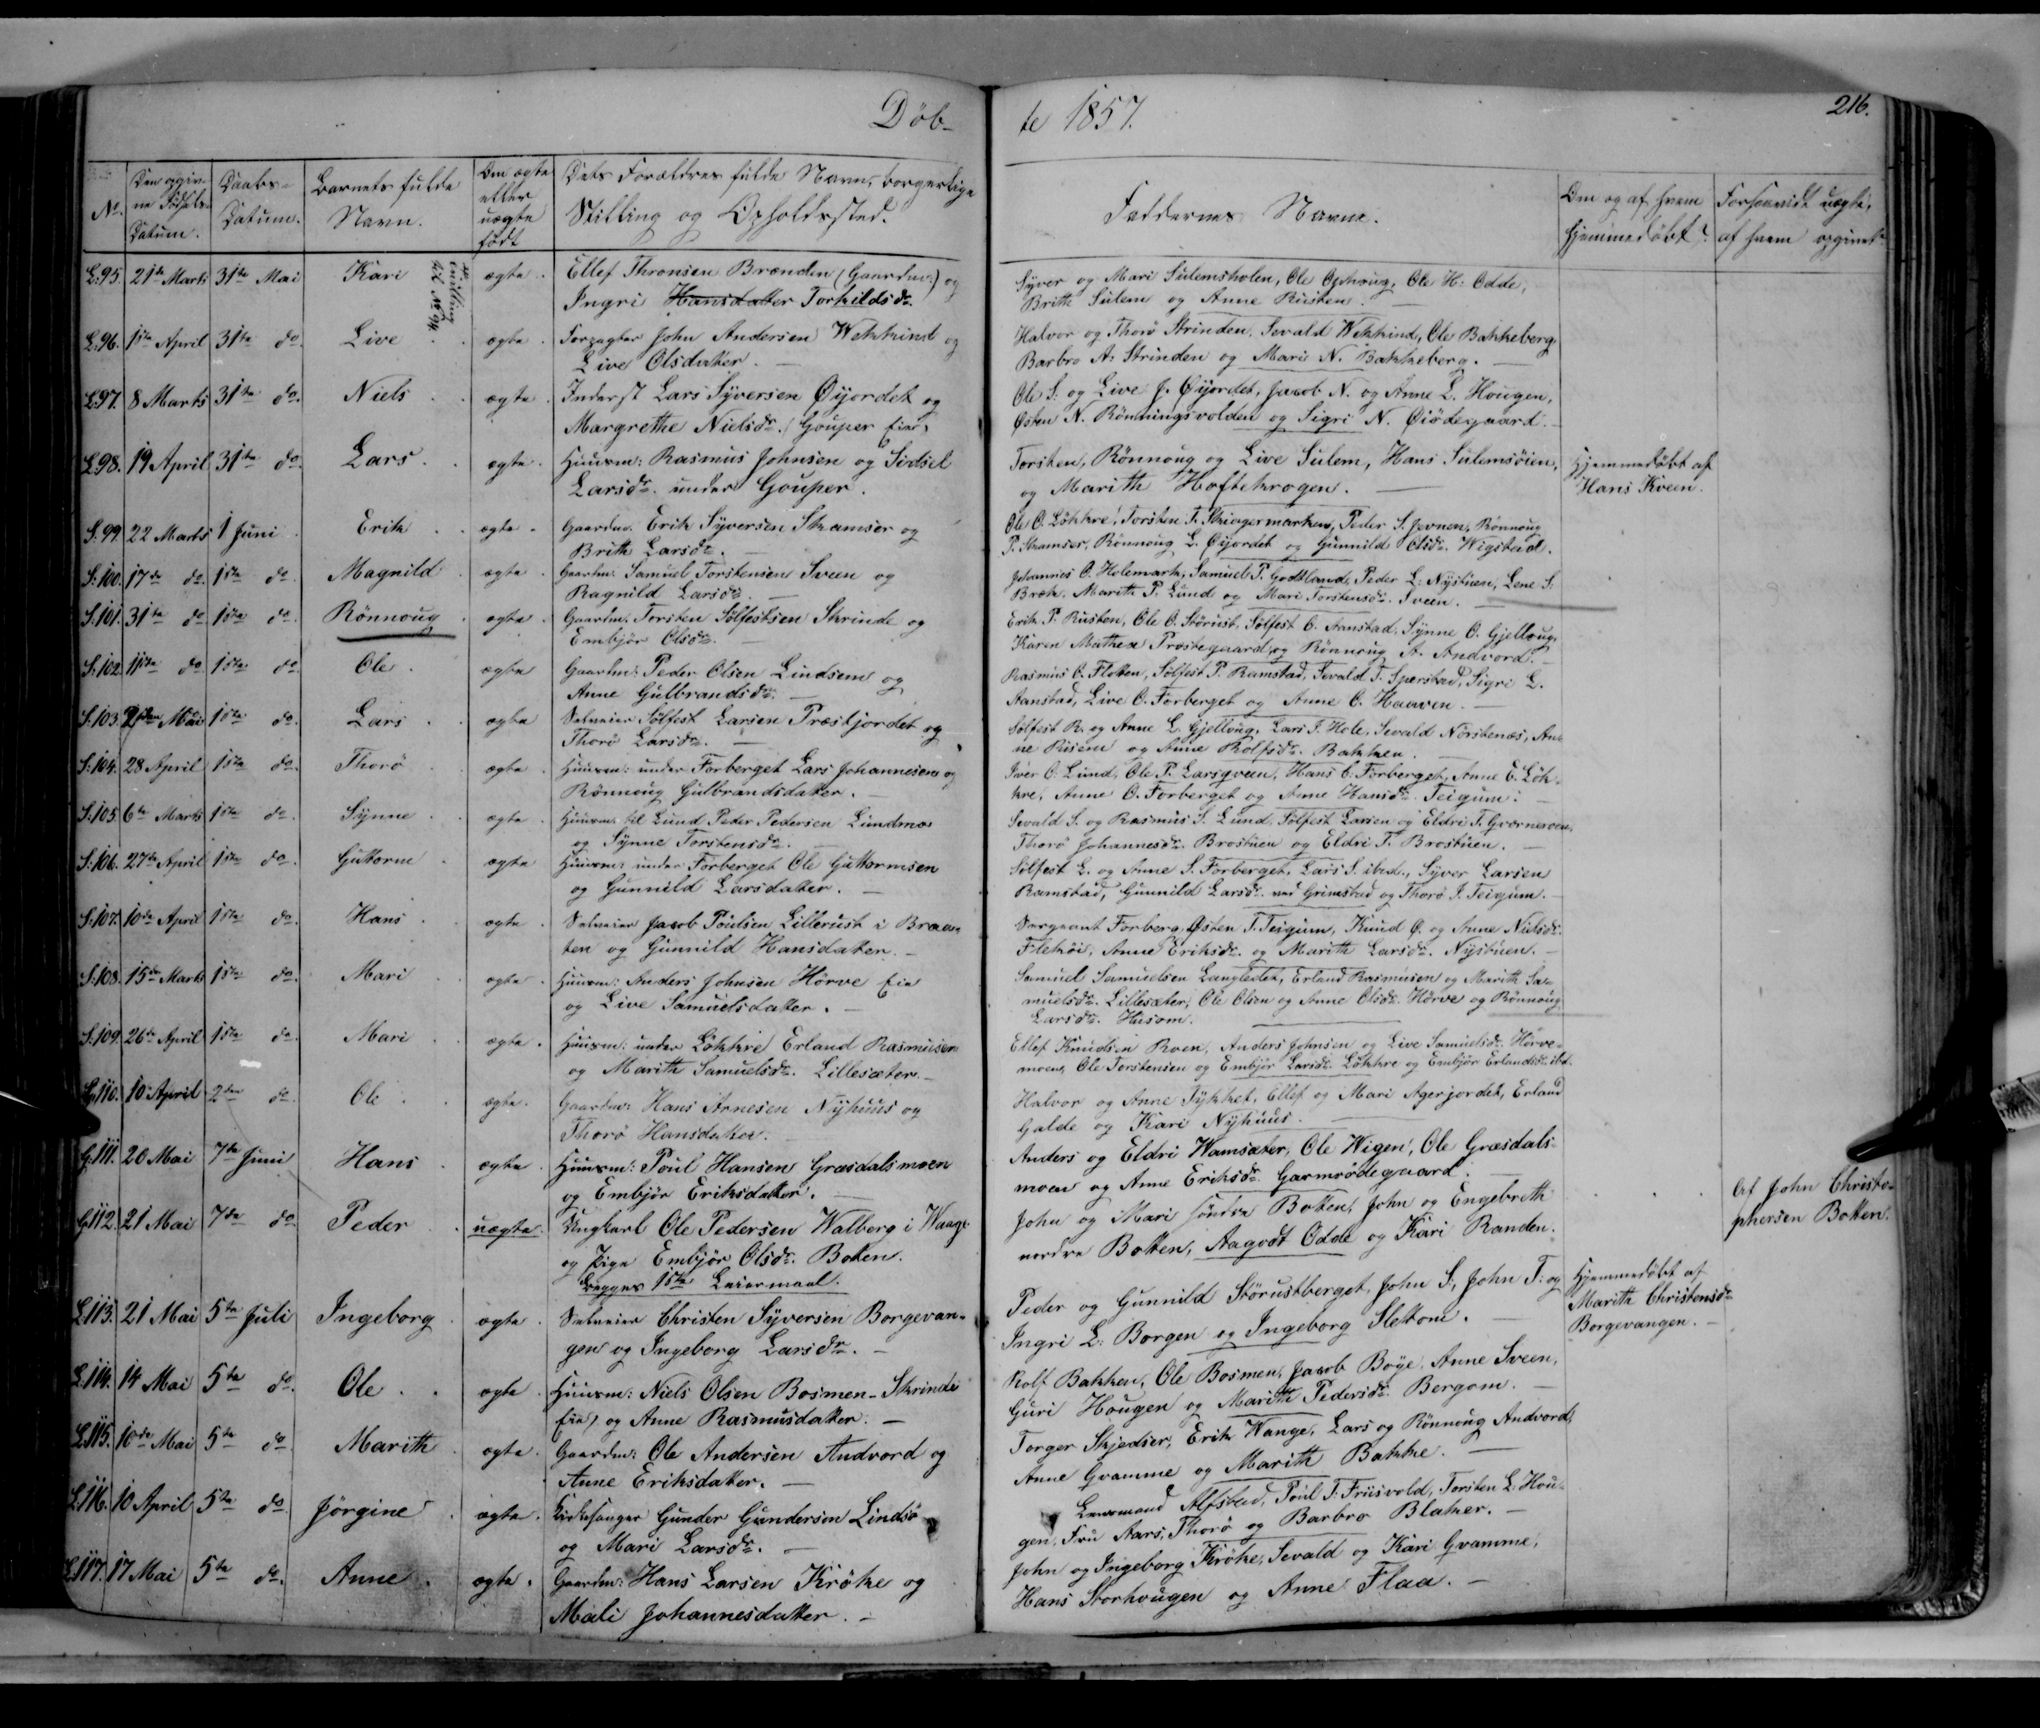 Döb-
te 1857.
216.
No.
Den opgiv-
ne Födsels-
Datum.
Daabs-
Datum.
Barnets fulde
Navn.
Om ægte
eller
uægte
födt
Dets Forældres fulde Navn, borgerlige
Stilling og Opholdssted.
Faddernes Navne.
Om og af hvem
hjemmedöbt?
Forsaavidt uægte,
af hvem opgivet
L. 95. 21de Marts 31te Mai Kari tvilling til No 94 ægte. Ellef Thronsen Brænden (Gaardm:) og
Ingri Hansdatter Torkildsdr.
Syver og Mari Sulemsholen, Ole Ophoug, Ole H: Odde,
Brith Sulem og Anne Rusten.
L. 96. 1ste April 31te do. Live ægte. Forpagter John Andersen Wekkind og
Live Olsdatter.
Halvor og Thorö Strinden, Sevald Wekkind, Ole Bakkeberg,
Barbro A: Strinden og Mari N. Bakkeberg.
L. 97. 8 Marts 31te do. Niels ægte. Inderst Lars Syversen Öyjordet og
Margrethe Nielsdr. Gouper Eie.
Ole S: og Live J. Öyjordet, Jacob N. og Anne L. Hougen,
Östen N. Rönningsvolden og Sigri N. Öiödegaard.
L. 98. 19 April 31te do. Lars ægte. Huusm: Rasmus Johnsen og Sidsel
Larsdr. under Gouper.
Torsten, Rönnoug og Live Sulem, Hans Sulemsöien,
og Marith Hoftekrogen.
Hjemmedöbt af
Hans Kveen.
S. 99. 22 Marts 1 Juni Erik ægte. Gaardm. Erik Syversen Skamser og
Brith Larsdr.
Ole O. Lökkre, Torsten T. Skiagermarken, Peder S. Jevnen, Rönnoug
P. Skamser, Rönnoug L. Öyjordet og Gunnild Olsdr. Wigstad.
S. 100. 17de do. 1ste do. Magnild ægte. Gaardm: Samuel Torstensen Sveen og
Ragnild Larsdr.
Johannes O. Holemark, Samuel P. Godtland, Peder L: Nystuen, Lene S.
Bræk, Marith P. Lund og Mari Torstensdr. Sveen.
S. 101. 31te do. 1ste do. Rönnoug ægte. Gaardm. Torsten Sölfestsen Skrinde og
Embjör Olsdr.
Erik P. Rusten, Ole O. Störust, Sölfest O. Aanstad, Synne O. Gjelloug,
Karen Mathea Præstegaard og Rönnoug A. Andvord.
S. 102. 11te do 1ste do Ole ægte Gaardm: Peder Olsen Lindsem og
Anne Gulbrandsdr.
Rasmus O. Flotten, Sölfest P. Ramstad, Sevald T. Sperstad, Sigri L.
Aanstad, Live O. Forberget og Anne O. Haaven.
S. 103. 2den Mai 1ste do. Lars ægte Selveier Sölfest Larsen Præstjordet og
Thorö Larsdr.
Sölfest R. og Anne L. Gjelloug, Lars T. Hole, Sevald Nörstenæs, An-
ne Risem og Anne Rolfsdr. Bakken.
S. 104. 28 April 1ste do. Thorö ægte. Huusm: under Forberget Lars Johannesen og
Rönnoug Gulbrandsdatter.
Iver O. Lund, Ole P. Larsqveen, Hans O. Forberget, Anne E. Lök-
kre, Anne O. Forberget og Anne Hansdr. Teigum.
S. 105. 6te Marts 1ste do. Synne ægte. Huusm. til Lund Peder Pedersen Lundmo
og Synne Torstensdr.
Sevald S. og Rasmus S. Lund, Sölfest Larsen og Eldri T. Gværnemoen,
Thorö Johannesdr. Brostuen og Eldri T. Brostuen.
S. 106. 27de April 1ste do Guttorm ægte Huusm: under Forberget Ole Guttormsen
og Gunnild Larsdatter.
Sölfest L. og Anne S. Forberget, Lars S. ibid., Syver Larsen
Ramstad, Gunnild Larsdr. ved Grimstad og Thorö J. Teigum.
S. 107. 10de April 1ste do Hans ægte. Selveier Jacob Poulsen Lillerust i Braa-
ten og Gunnild Hansdatter.
Sergeant Forberg, Östen T. Teigum, Knud O. og Anne Nielsdr.
Fleköi, Anne Eriksdr. og Marith Larsdr. Nystuen.
S. 108. 15de Marts 1ste do. Mari ægte. Huusm: Anders Johnsen Hörve Eie
og Live Samuelsdatter.
Samuel Samuelsen Langledet, Erland Rasmusen og Marith Sa-
muelsdr. Lillesæter, Ole Olsen og Anne Olsdr. Hörve og Rönnoug
Larsdr. Husom.
S. 109. 26de April 1ste do. Mari ægte. Huusm: under Lökkre Erland Rasmusen
og Marith Samuelsdr. Lillesæter.
Ellef Knudsen Roen, Anders Johnsen og Live Samuelsdr. Hörve-
moen, Ole Torstensen og Embjör Larsdr. Lökkre og Embjör Erlandsdr. ibd.
G. 110. 10 April 2den do. Ole ægte. Gaardm: Hans Arnesen Nyhuus og
Thorö Hansdatter.
Halvor og Anne Sykket, Ellef og Mari Agerjordet, Erland
Galde og Kari Nyhuus.
G. 111. 20 Mai 7de Juni Hans ægte. Huusm: Poul Hansen Græsdalsmoen
og Embjör Eriksdatter.
Anders og Eldri Wamsæter, Ole Wigen, Ole Græsdals-
moen og Anne Eriksdr. Garmrödegaard.
G. 112. 21 Mai 7de do. Peder uægte. Ungkarl Ole Pedersen Walberg i Waage
og Pige Embjör Olsdr. Botten.
Begges 1ste Leiermaal.
John og Mari söndre Botten, John og Engebreth
nordre Botten, Aagodt Odde og Kari Randen.
Af John Christo-
phersen Botten.
L. 113. 21 Mai 5te Juli Ingeborg ægte. Selveier Christen Syversen Borgevan-
gen og Ingeborg Larsdr.
Peder og Gunnild Störustberget, John S., John T: og
Ingri L: Borgen og Ingeborg Slettom.
Hjemmedöbt af
Marith Christensdr
Borgevangen.
L. 114. 14 Mai 5te do. Ole ægte Huusm: Niels Olsen Bosmen- Skrinde
Eie, og Anne Rasmusdatter.
Rolf Bakken, Ole Bosmen, Jacob Böye, Anne Sveen,
Guri Hougen og Marith Pedersdr. Bergom.
L. 115. 10de Mai 5te do Marith ægte. Gaardm: Ole Andersen Andvord og
Anne Eriksdatter.
Torger Skjedser, Erik Wange, Lars og Rönnoug Andvord,
Anne Qvamme og Marith Bakke.
L. 116. 10 April 5te do Jörgine ægte. Kirkesanger Gunder Gundersen Lindsö
og Mari Larsdr.
Lensmand Alfstad, Poul T. Friisvold, Torsten L: Hou-
gen, Fru Aars, Thorö og Barbro Blaker.
L. 117. 17 Mai 5te do. Anne ægte. Gaardm: Hans Larsen Kröke og
Mali Johannesdatter.
John og Ingeborg Kröke, Sevald og Kari Qvamme,
Hans Storhougen og Anne Flaa.